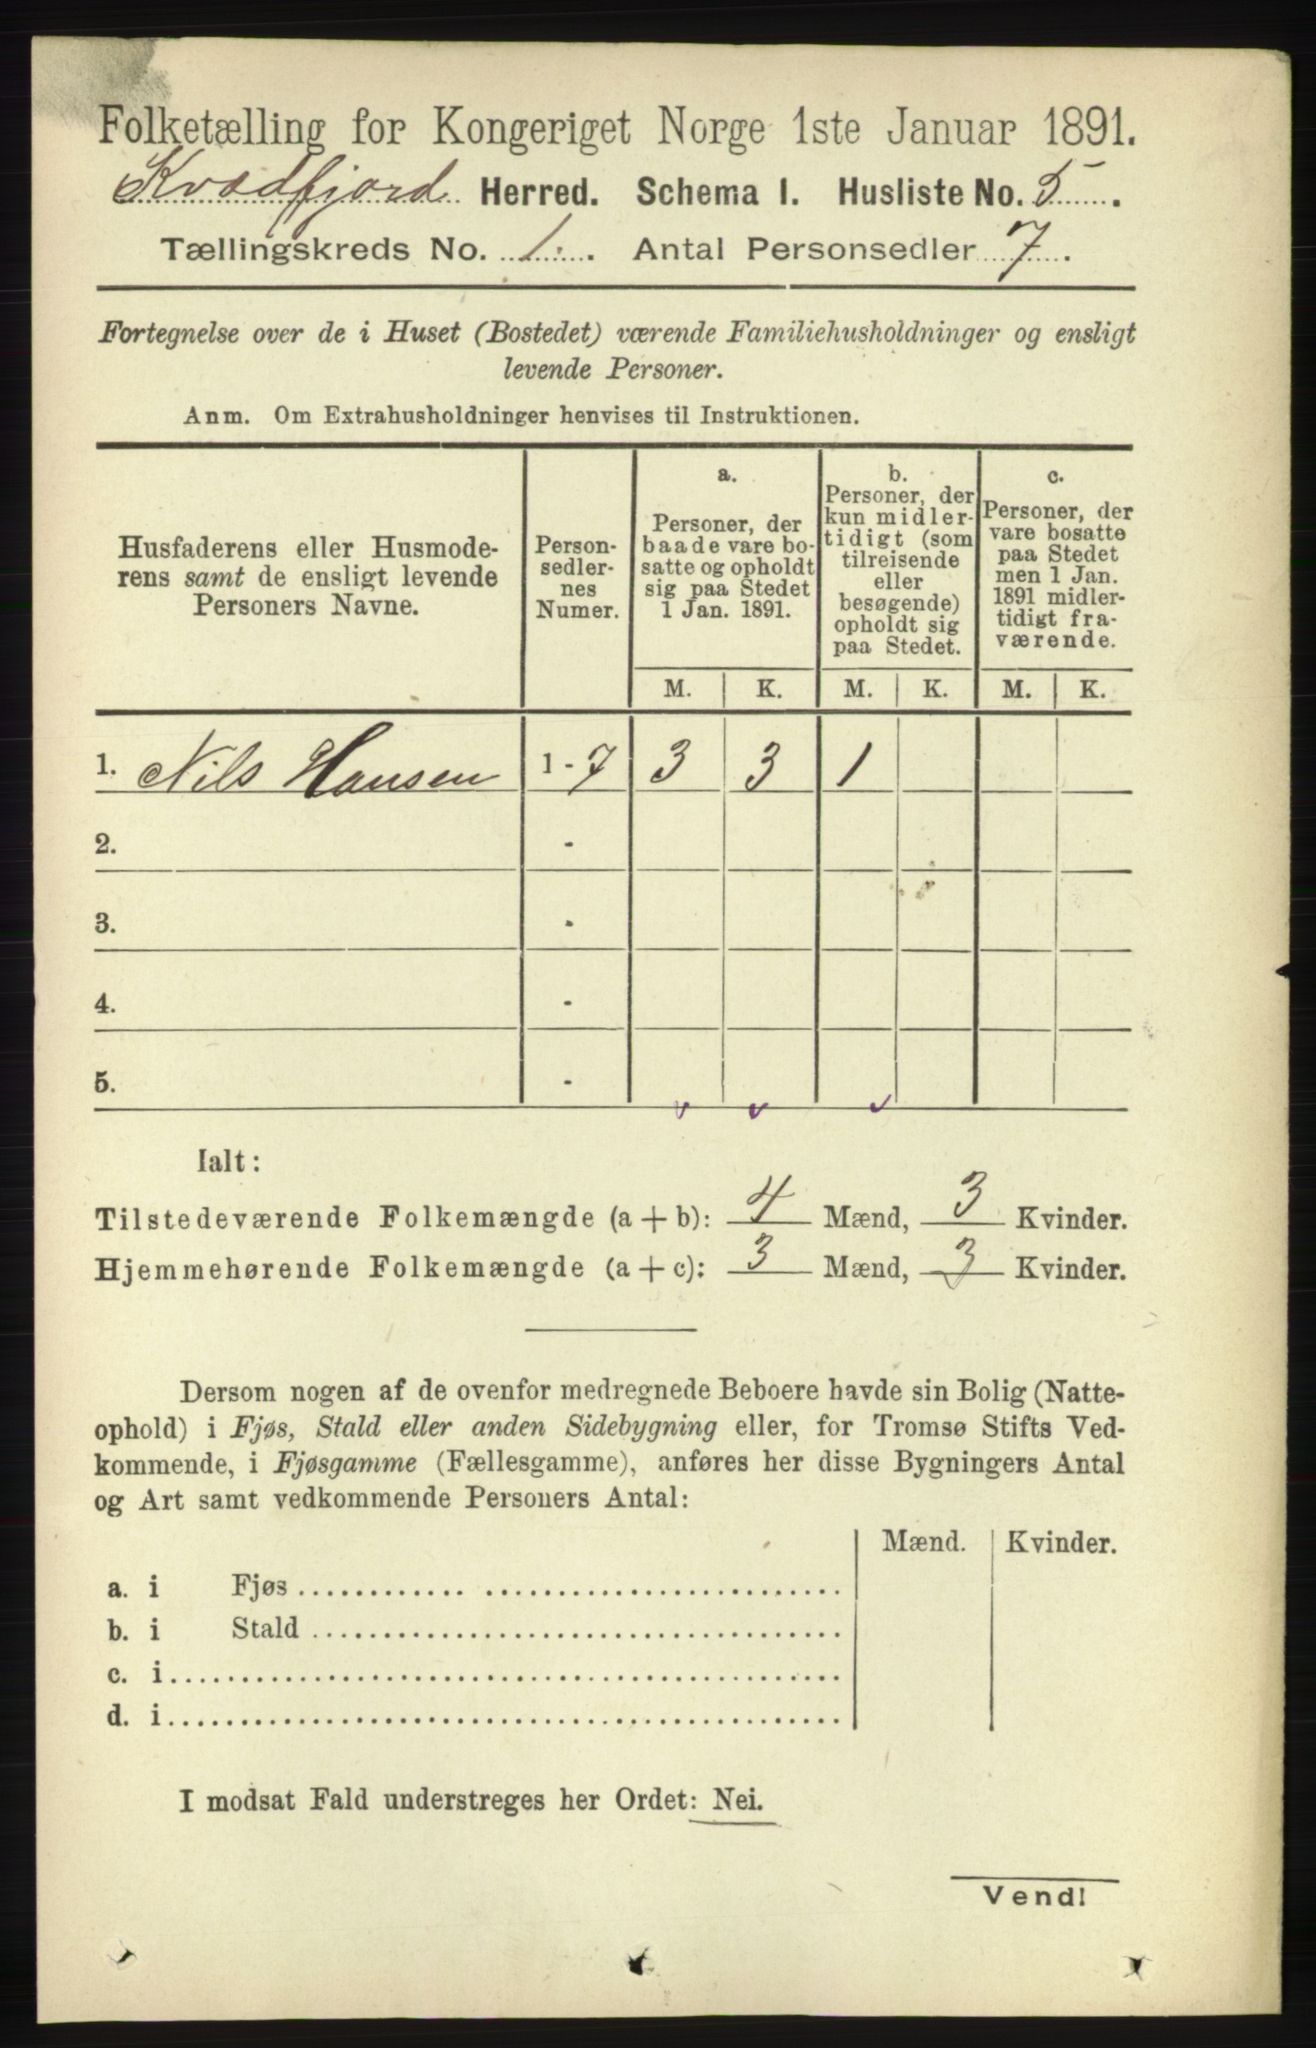 Folketælling for Kongeriget Norge 1ste Januar 1891.
Kvædfjord Herred. Schema I. Husliste No. 5.
Tællingskreds No. 1. Antal Personsedler 7.
Fortegnelse over de i Huset (Bostedet) værende Familiehusholdninger og ensligt
levende Personer.
Anm. Om Extrahusholdninger henvises til Instruktionen.
Husfaderens eller Husmode-
rens samt de ensligt levende
Personers Navne.
Person-
sedler-
nes
Numer.
a.
Personer, der
baade vare bo-
satte og opholdt
sig paa Stedet
1 Jan. 1891.
b.
Personer, der
kun midler-
tidigt (som
tilreisende
eller
besøgende)
opholdt sig
paa Stedet.
c.
Personer, der
vare bosatte
paa Stedet
men 1 Jan.
1891 midler-
tidigt fra-
værende.
M. K. M. K. M. K.
1. Nils Hansen 1 - 7 3 3 1
2. -
3. -
4. -
5. -
Ialt:
Tilstedeværende Folkemængde (a + b): 4 Mænd, 3 Kvinder.
Hjemmehørende Folkemængde (a + c): 3 Mænd, 3 Kvinder.
Dersom nogen af de ovenfor medregnede Beboere havde sin Bolig (Natte-
ophold) i Fjøs, Stald eller anden Sidebygning eller, for Tromsø Stifts Ved-
kommende, i Fjøsgamme (Fællesgamme), anføres her disse Bygningers Antal
og Art samt vedkommende Personers Antal:
Mænd. Kvinder.
a. i Fjøs
b. i Stald
c. i
d. i
I modsat Fald understreges her Ordet: Nei.
Vend!